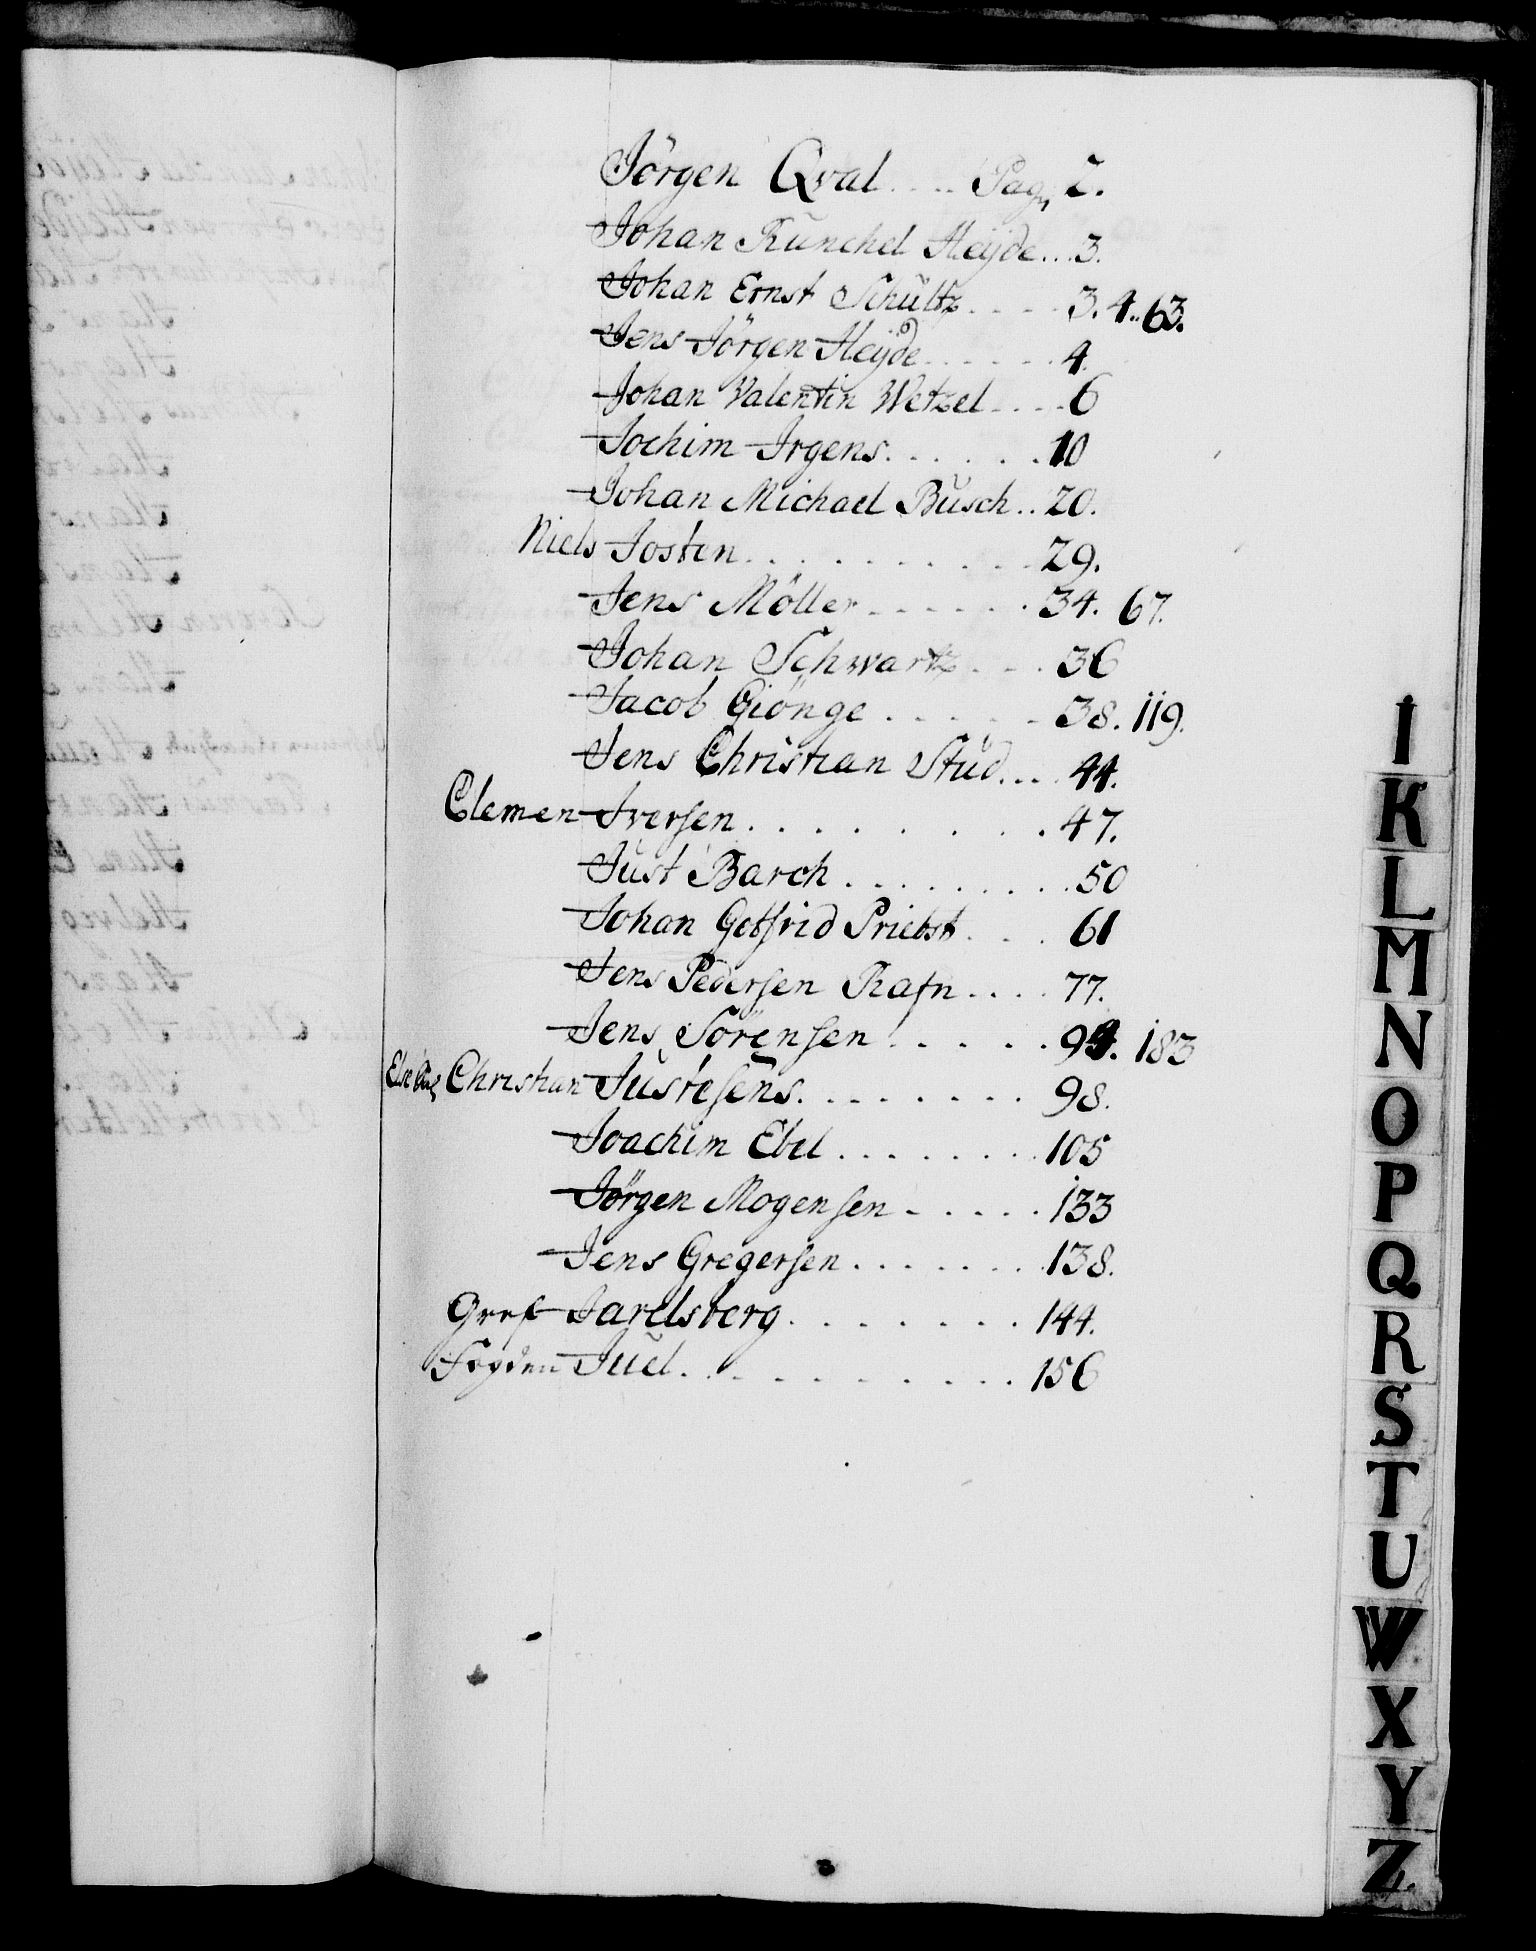 Jörgen Qval .... Pag 2.
Johan Runckel Heyde... 3.
Johan Ernst Schultz .... 3. 4.. 63.
Jens Jörgen Heyde ...... 4.
Johan Valentin Wetzel .... 6
Jochim Irgens ...... 10
Johan Michael Busch .. 20.
Niels Josten .......... 29.
Jens Möller ...... 34. 67.
Johan Schwartz ... 36
Jacob Giönge ..... 38. 119.
Jens Christian Stud... 44.
Clemen Iversen ......... 47.
Just Barch ........ 50
Johan Gotfrid Priebst ... 61
Jens Pedersen Rafn .... 77.
Jens Sörensen ..... 94. 183
Christian Justesens ........ 98.
Joachim Ebel ....... 105
Jörgen Mogensen ..... 133
Jens Gregersen ....... 138.
Gref Jarelsberg ........ 144.
Fogden Juel .......... 156
I
K
L
M
N
O
P
Q
R
S
T
U
W
X
Y
Z